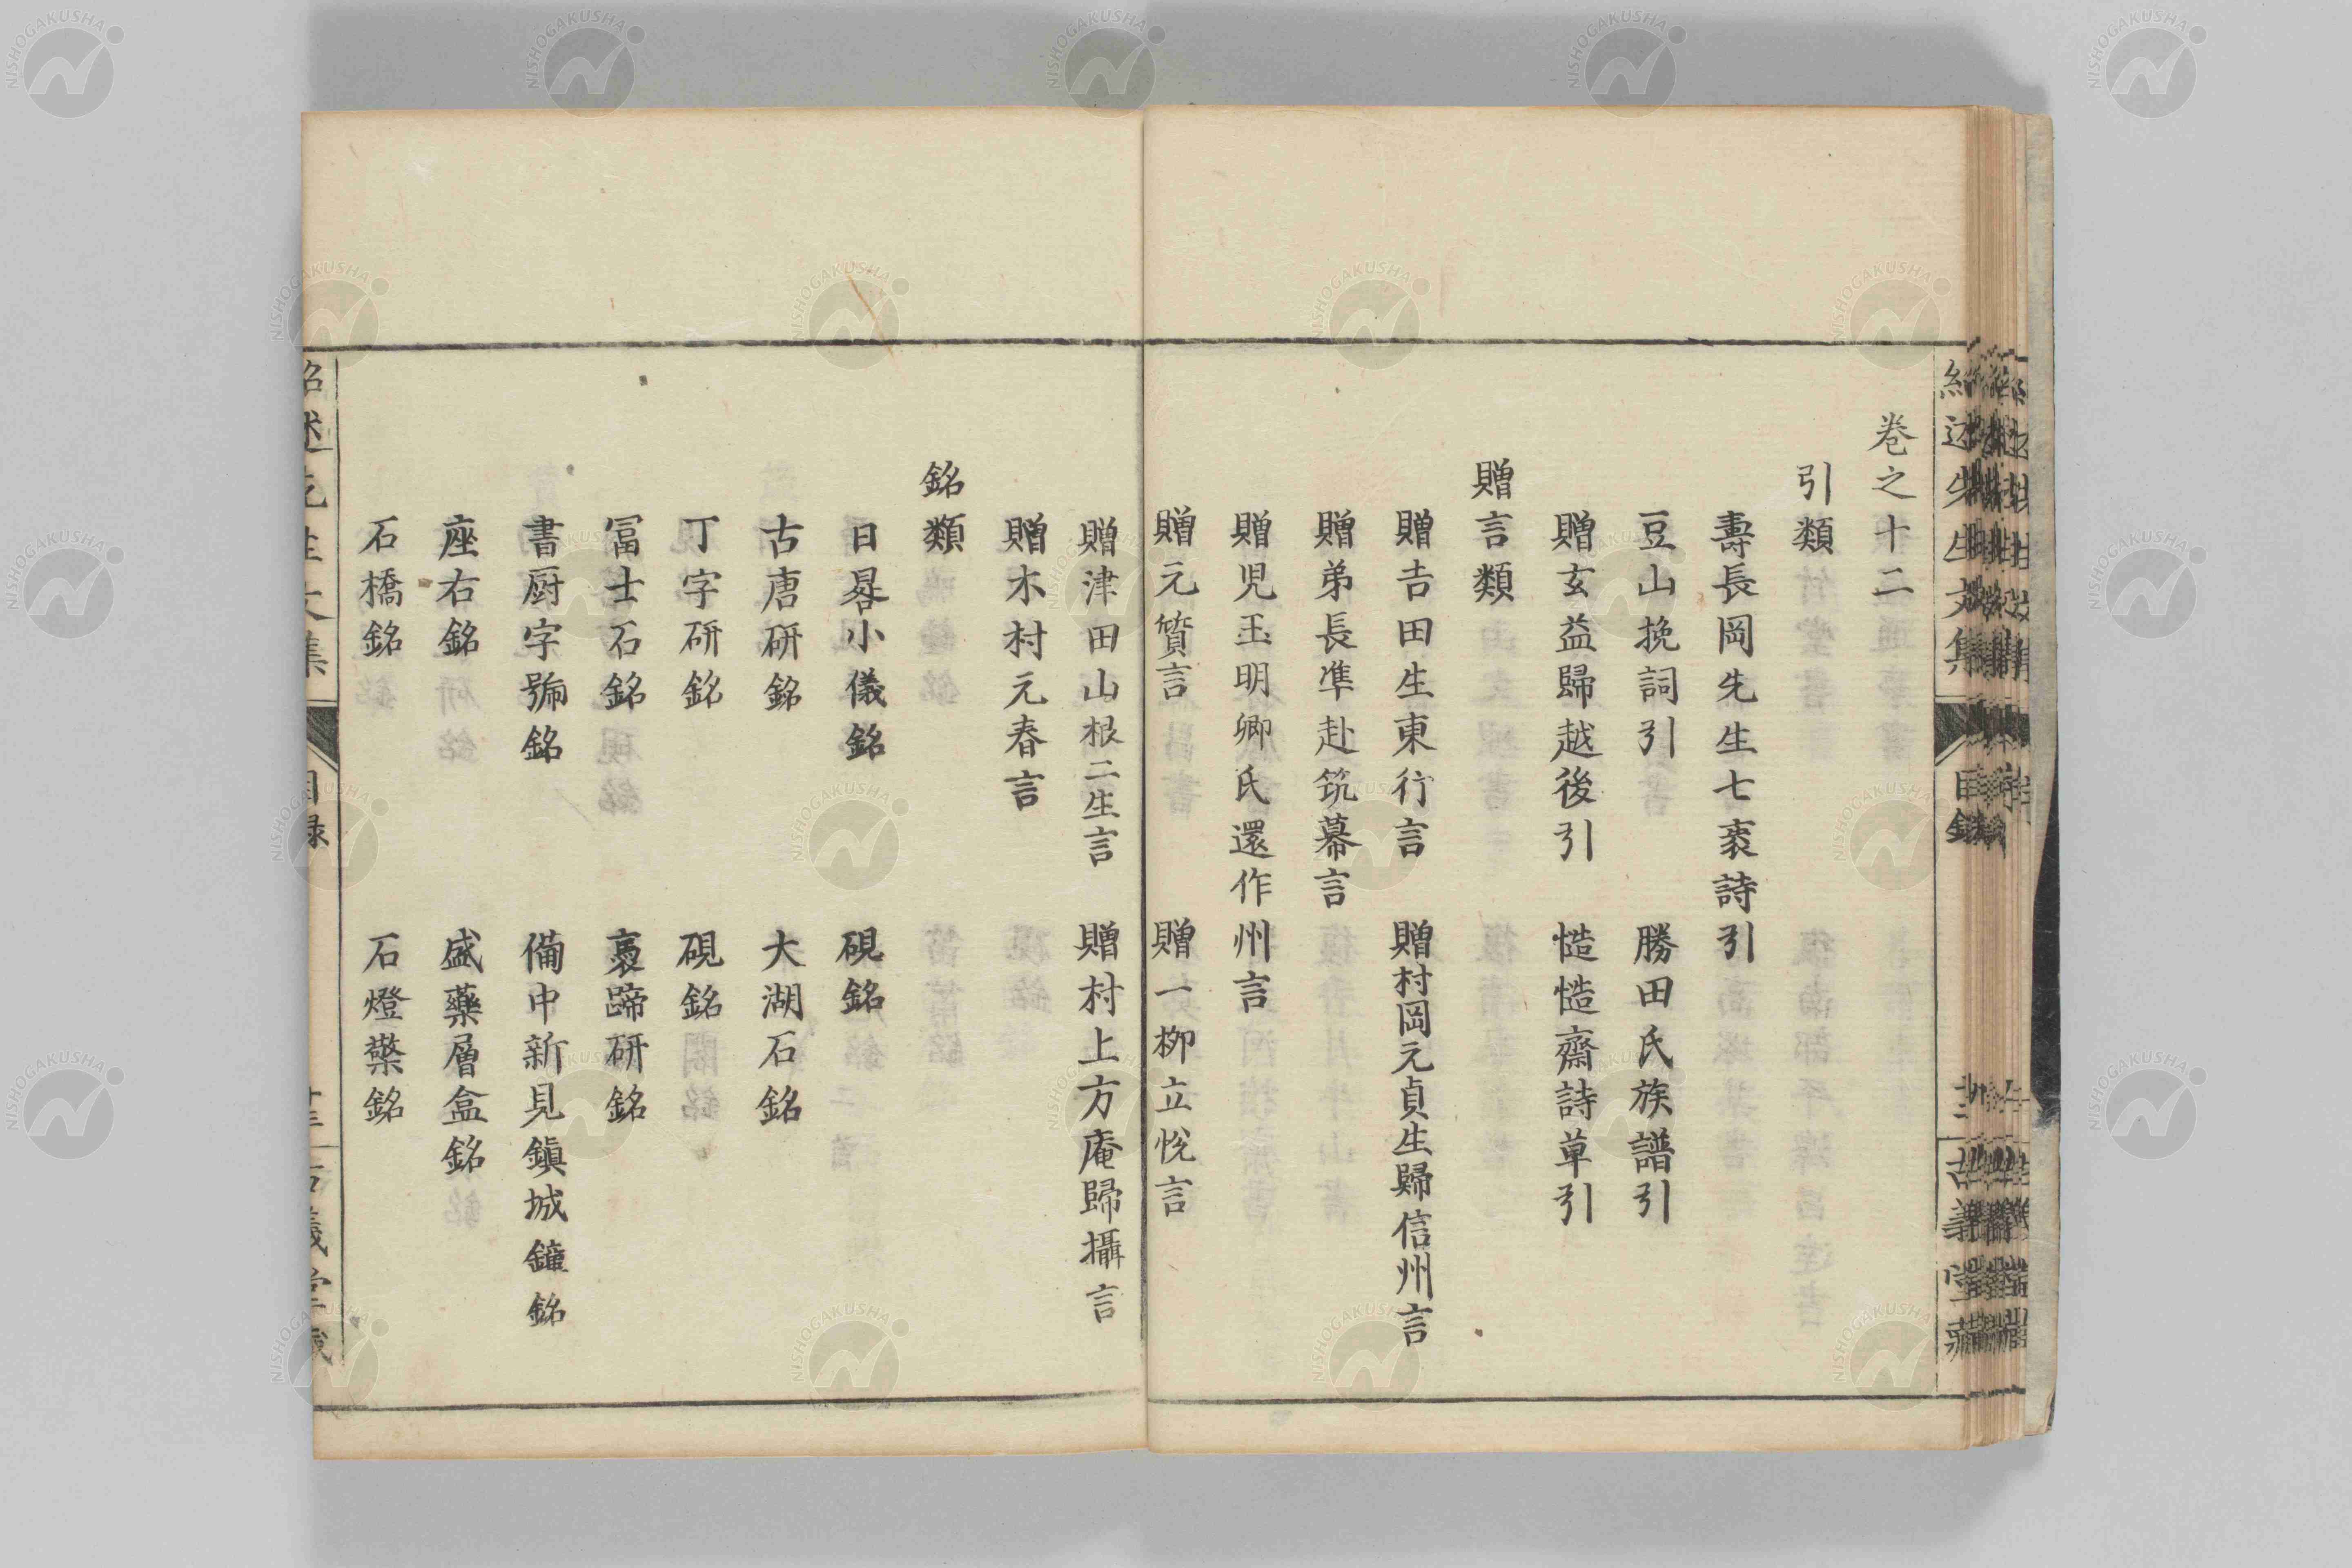 卷之十二
引類
壽長岡先生七袠詩引
豆山挽詞引 勝田氏族譜引
贈玄益歸越後引 慥慥齋詩草引
贈言類
贈吉田生東行言 贈村岡元貞生歸信州言
贈弟長準赴筑幕言
贈児玉明卿氏還作州言
贈元質言 贈一柳立悅言
贈津田山根二生言 贈村上方庵歸攝言
贈木村元春言
銘類
日晷小儀銘 硯銘
古唐研銘 大湖石銘
丁字研銘 硯銘
冨士石銘 褭蹄研銘
書厨字號銘 備中新見鎭城鐘銘
座右銘 盛藥層盒銘
石橋銘 石燈檠銘
紹述先生文集 目錄 古義堂藏
NISHOGAKUSHA